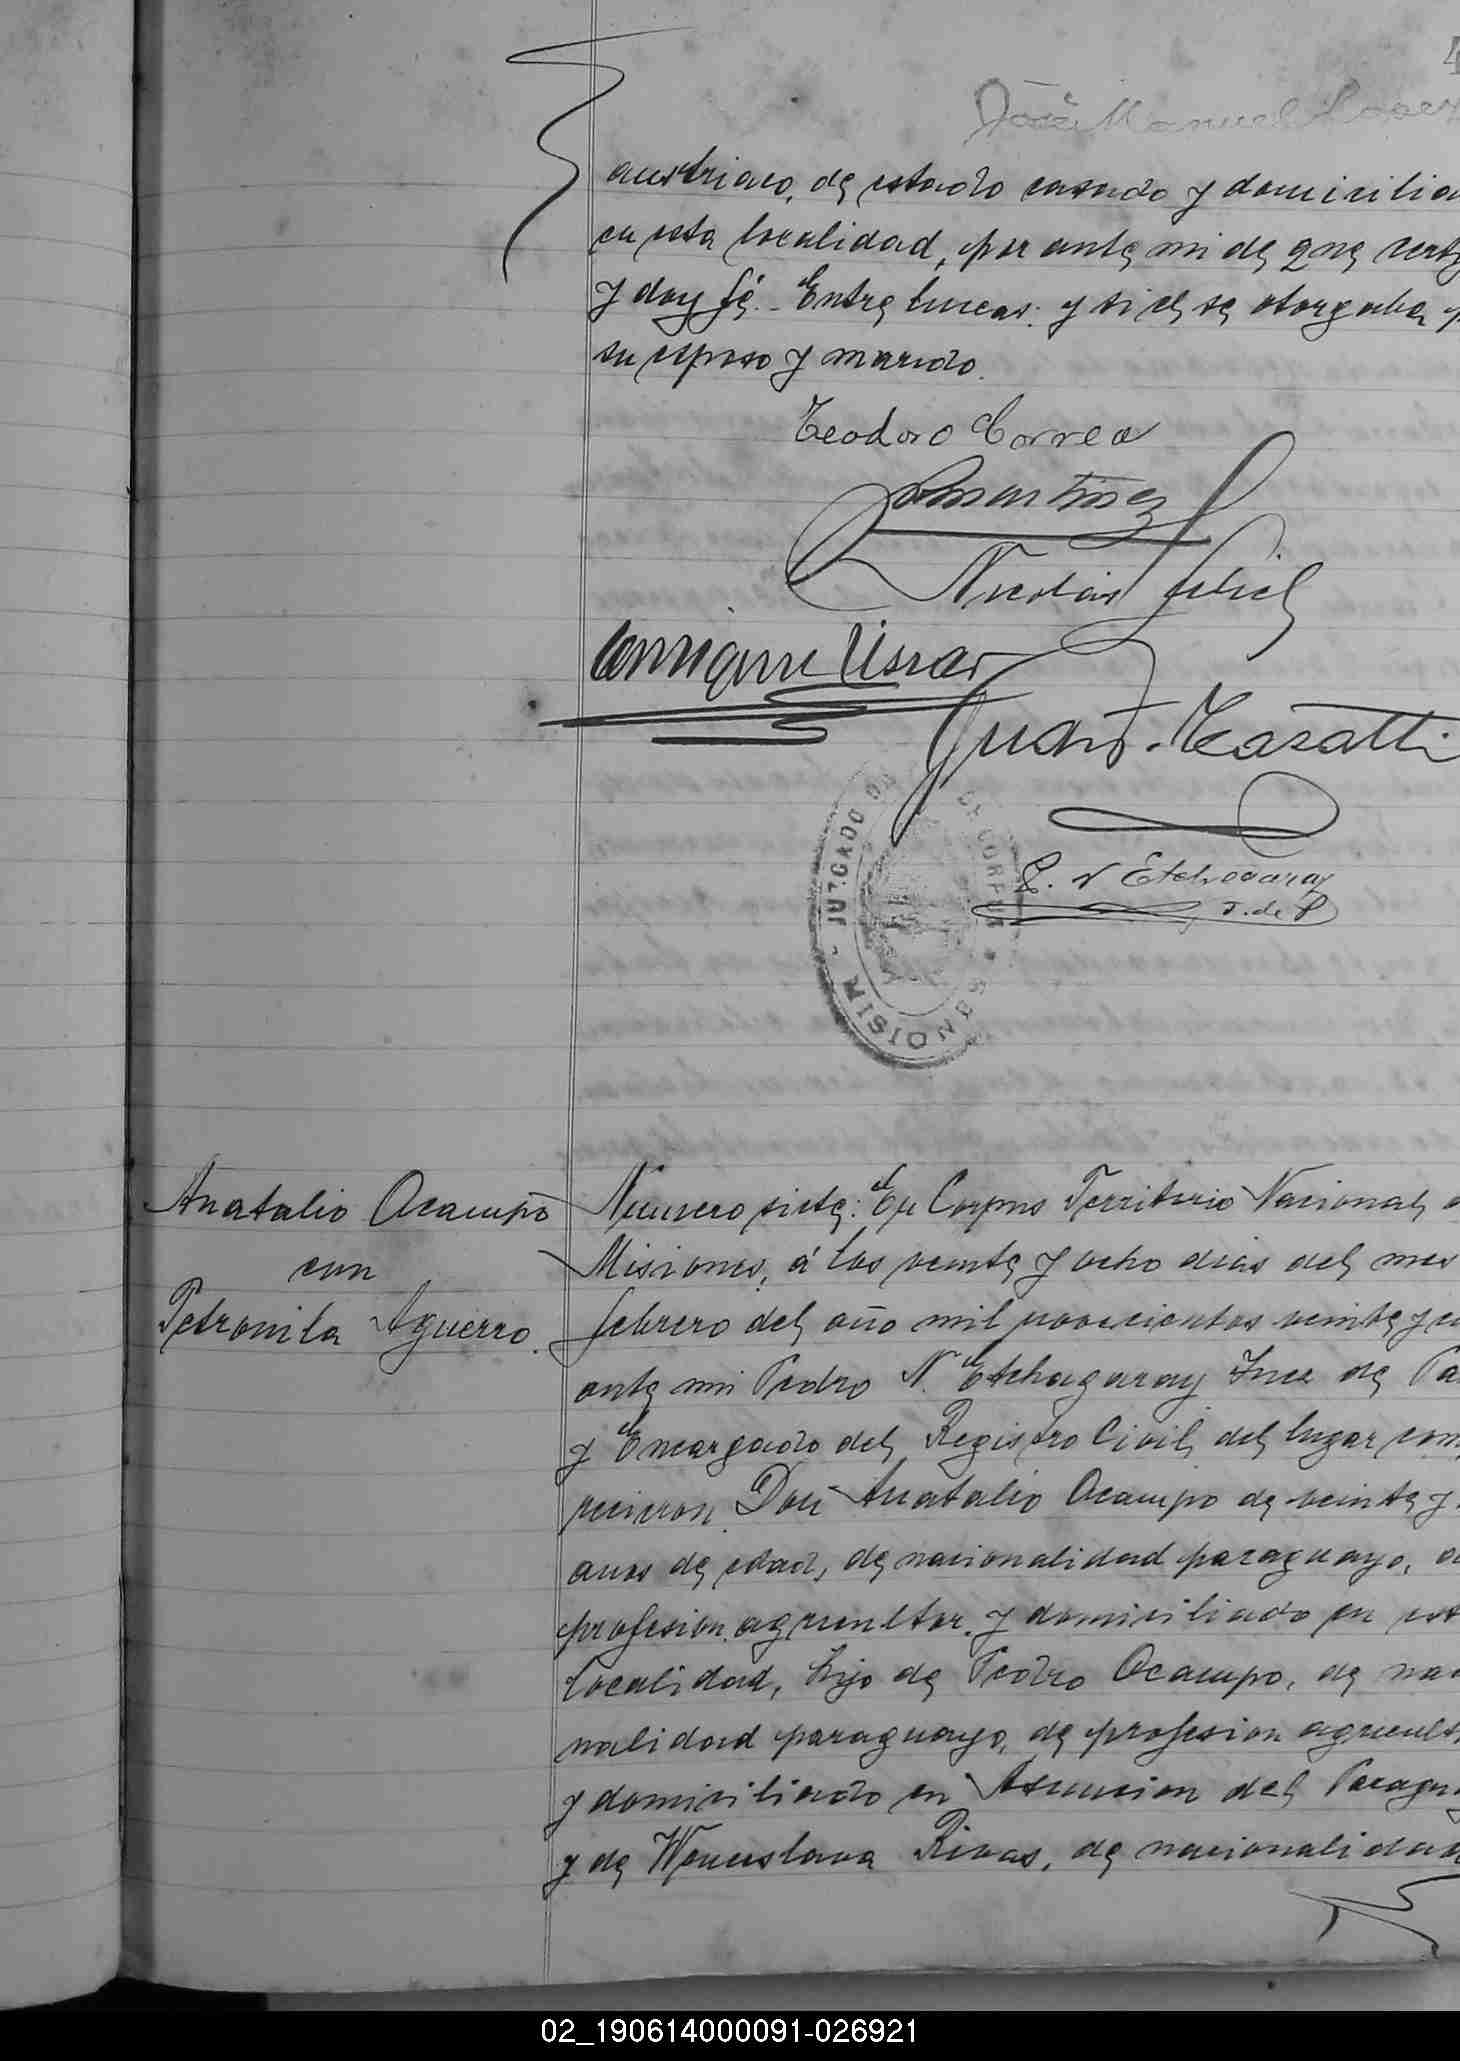 José Manuel Lopez
austriaco, de estado casado y domicilia
en esta localidad, por ante mi de que certi
y doy fé. - Entre lineas: y si él se otorgaba p
su esposo y marido.
Teodoro Correa
Martinez
Nicolás
Enrique
Juan. Tasatti
P. N Etchegaray
J. de P
JUZGADO DE CORPUS
MISIONES
Anatalio Ocampo
con
Petronila Aguerro.
Numero siete: En Corpus Territorio Nacional
Misiones, á los veinte y ocho dias del mes
febrero del año mil novecientos veinte y
ante mi Pedro N. Etchegaray Juez de Pa
y Encargado del Registro Civil del lugar com
recieron Don Anatalio Ocampo de veinte y
anos de edad, de nacionalidad paraguayo,
profesion agricultor y domiciliado en est
localidad, hijo de Pedro Ocampo, de na
nalidad paraguayo, de profesion agricult
y domiciliado en Asuncion del Paragu
y de Wenceslava Rivas, de nacionalidad
02_190614000091-026921